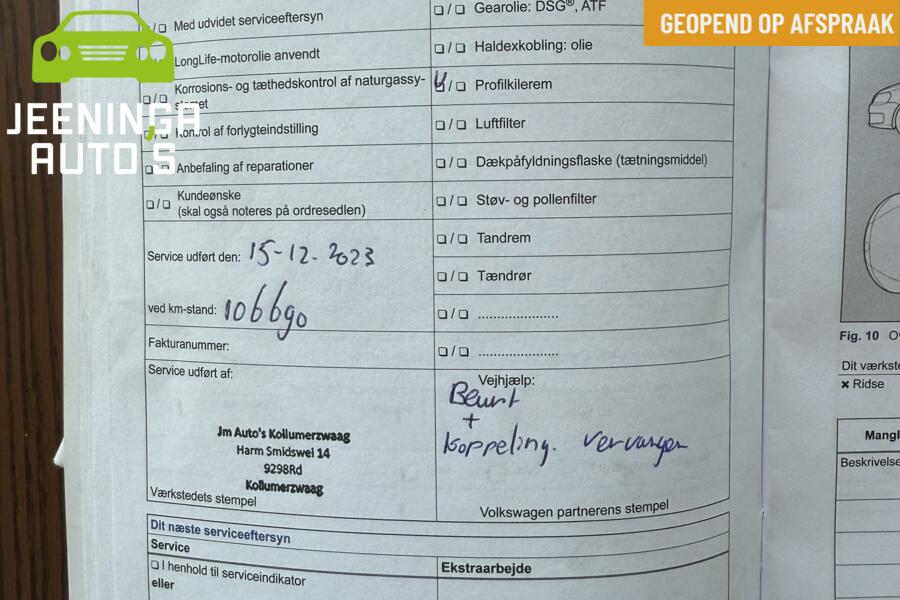 GEOPEND OP AFSPRAAK
JEENINGA
AUTO'S
Med udvidet serviceeftersyn
LongLife-motorolie anvendt
Korrosions- og tæthedskontrol af naturgassy-
stemet
Kontrol af forlygteindstilling
Anbefaling af reparationer
Kundeønske
(skal også noteres på ordresedlen)
Service udført den: 15-12-2023
ved km-stand: 106690
Fakturanummer:
Service udført af:
Jm Auto's Kollumerzwaag
Harm Smidswei 14
9298Rd
Kollumerzwaag
Værkstedets stempel
Gearolie: DSG®, ATF
Haldexkobling: olie
Profilkilerem
Luftfilter
Dækpåfyldningsflaske (tætningsmiddel)
Støv- og pollenfilter
Tandrem
Tændrør
/ ......................
/ ......................
Vejhjælp:
Beurt
+
koppeling. vervangen
Volkswagen partnerens stempel
Dit næste serviceeftersyn
Service
I henhold til serviceindikator
eller
Ekstraarbejde
Fig. 10
Dit værkste
× Ridse
Mangl
Beskrivelse